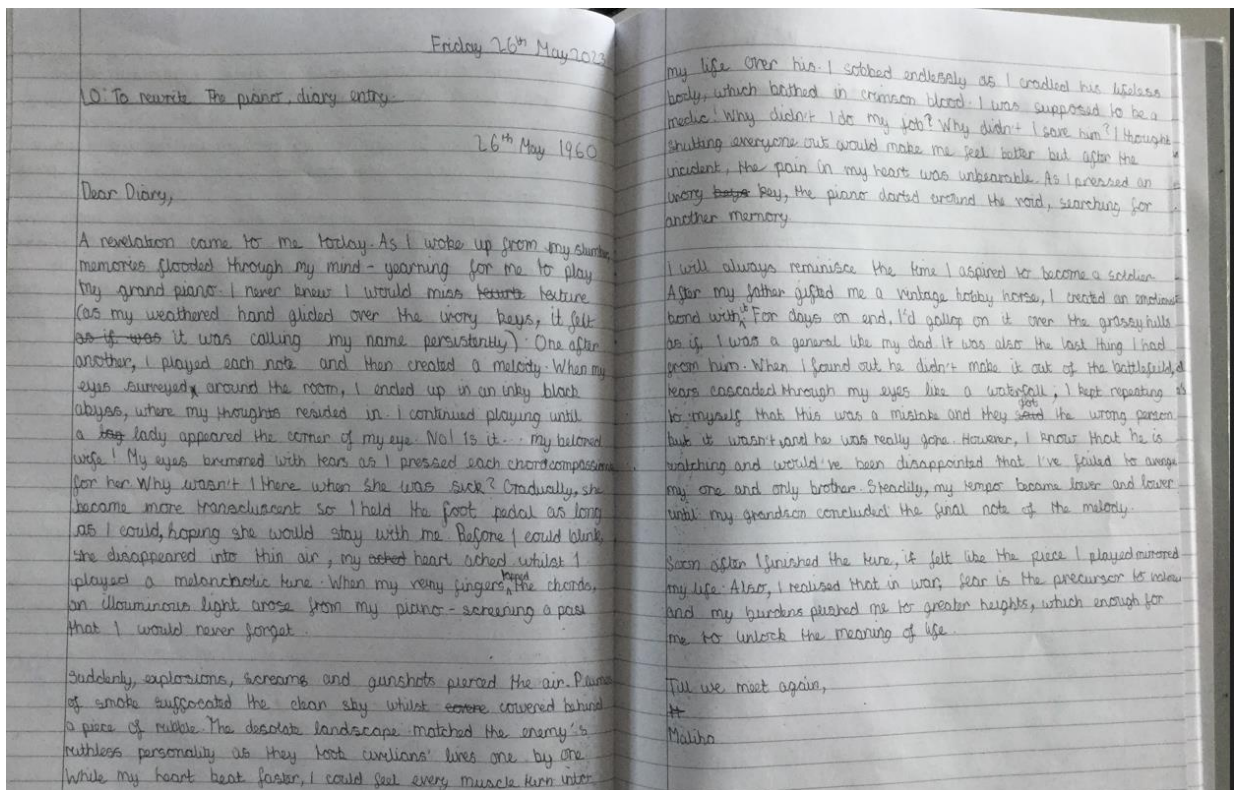 Friday 26th May 2023
LO: To rewrite The piano, diary entry.
26th May 1960
Dear Diary,
A revelation came to me today. As I woke up from my
memories flooded through my mind - yearning for me to play
my grand piano. I never knew I would miss texture
(as my weathered hand glided over the ivory keys, it felt
as if was it was calling my name persistently). One after
another, I played each note and then created a melody. When my
eyes surveyed around the room, I ended up in an inky black
abyss, where my thoughts resided in. I continued playing until
a lady appeared the corner of my eye. No! Is it... my beloved
wife! My eyes brimmed with tears as I pressed each chord
for her. Why wasn't I there when she was sick? Gradually, she
became more transcluscent so I held the foot pedal as long
as I could, hoping she would stay with me. Before I could blink,
she disappeared into thin air, my ached heart ached whilst I
played a melancholic tune. When my veiny fingers the chords,
an illouminous light arose from my piano - screening a past
that I would never forget.
Suddenly, explosions, screams and gunshots pierced the air.
of smoke suffocated the clean sky whilst cowered behind
a piece of rubble. The desolate landscape matched the enemy's
ruthless personality as they took civilians' lives one by one.
While my heart beat faster, I could feel every muscle turn
my life over his. I sobbed endlessly as I cradled his lifeless
body, which bathed in crimson blood. I was supposed to be a
medic! Why didn't I do my job? Why didn't I save him? I thought
shutting everyone out would make me feel better but after the
incident, the pain in my heart was unbearable. As I pressed an
ivory key, the piano darted around the void, searching for
another memory.
I will always reminisce the time I aspired to become a soldier.
After my father gifted me a vintage hobby horse, I created an emotional
bond with it. For days on end, I'd gallop on it over the grassy hills
as if, I was a general like my dad. It was also the last thing I had
from him. When I found out he didn't make it out of the
tears cascaded through my eyes like a waterfall; I kept repeating
to myself that this was a mistake and they got the wrong person
but it wasn't, and he was really gone. However, I know that he is
watching and would've been disappointed that I've failed to avenge
my one and only brother. Steadily, my tempo became lower and lower
until my grandson concluded the final note of the melody.
Soon after I finished the tune, it felt like the piece I played mirrored
my life. Also, I realised that in war, fear is the precursor to
and my burdens pushed me to greater heights, which enough for
me to unlock the meaning of life.
Till we meet again,
Maliha